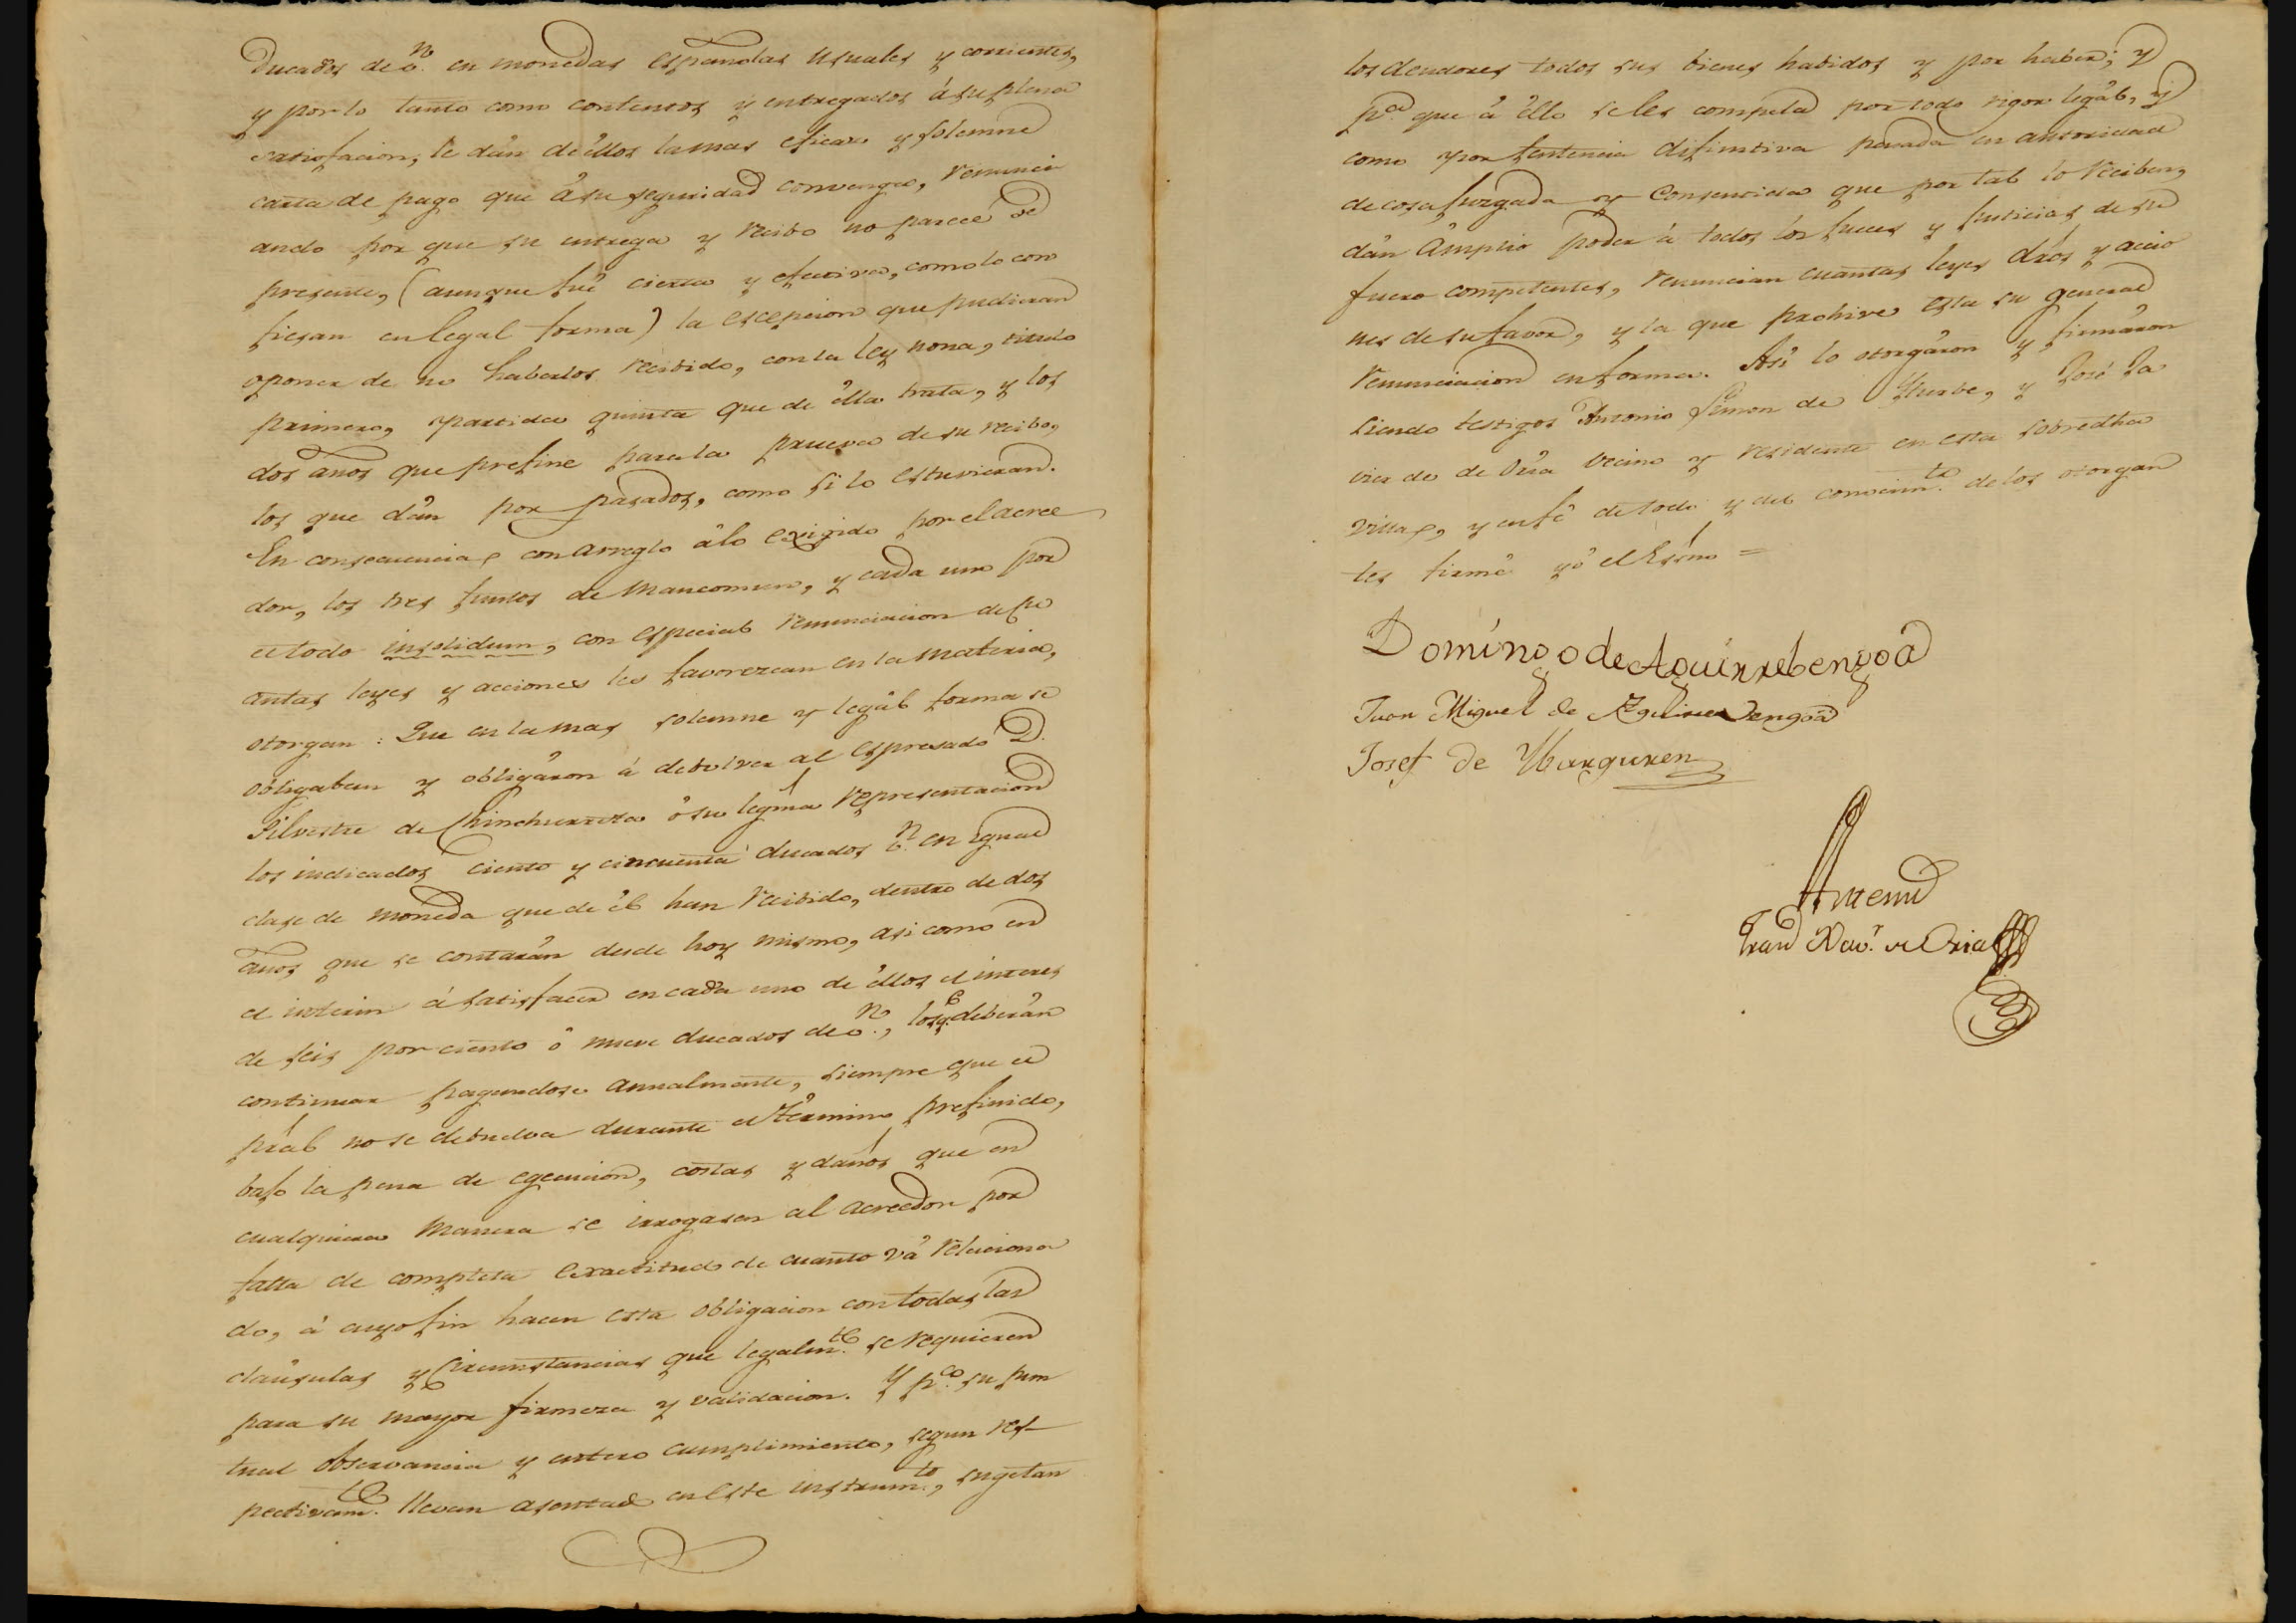 Ducados de v.n en monedas españolas usuales y corrientes,
y por lo tanto como contentos y entregados á su plena
satisfacion, le dán de éllos la mas eficaz y solemne
carta de pago que á su seguridad convenga, renunci
ando por que su entrega y recibo no parece de
presente, (aunque fué cierta y efectiva, como lo con
fiesan en legal forma) la escepcion que pudieran
oponer de no haberlos recibido, con la ley nona, titulo
primero, partida quinta que de élla trata, y los
dos años que prefine para la prueva de su recibo,
los que dán por pasados, como si lo estuvieran.
En consecuencia, con arreglo á lo exigido por el acree
dor, los tres juntos de mancomun, y cada uno por
el todo insolidum, con especial renunciacion de qu
antas leyes y acciones les favorezcan en la materia,
otorgan: Que en la mas solemne y legál forma se
obligaban y obligáron á debolver al espresado D.
Silvestre de Chinchurreta ó su legma representacion
los indicados ciento y cincuenta ducados v.n en igual
clase de moneda que de él han recibido, dentro de dos
años que se contarán desde hoy mismo, asi como en
el interin á satisfacer en cada uno de éllos el interes
de seis por ciento ó nueve ducados de v.n, los q.e deberán
continuar pagandose annalmente, siempre que el
prál no se debuelva durante el término prefinido,
bajo la pena de egecucion, costas y daños que en
cualquiera manera se irrogasen al acreedor por
falta de completa exactitud de cuanto vá relaciona
do, á cuyo fin hacen esta obligacion con todas las
cláusulas y circunstancias que legalm.te se requieren
para su mayor firmeza y validacion. Y p.a su pun
tual observancia y entero cumplimiento, segun res-
pectivam.te llevan asentado en este instrum.to, sugetan
los deudores todos sus bienes habidos y por haber; y
p.a que á éllo se les compela por todo rigor legál, y
como por sentencia difinitiva pasada en autoridad
de cosa juzgada y consentida que por tal lo reciben,
dán ámplio poder á todos los jueces y justicias de su
fuero competentes, renuncian cuantas leyes dros y accio
nes de su favor, y la que prohive esta su general
renunciacion en forma. Asi lo otorgáron y firmáron
siendo testigos Antonio Simon de Yturbe, y José Ja
vier de de Oria vecino y residente en esta sobredha
villa, y en fé de todo y del conocim.to de los otorgan
tes firmé yó el Esno =
Domíngo de Aguirrebengoa
Juan Miguel de Aguirre Vengoa
Josef de Ybarguren
Antemi
Fran.co Xav.r de Oria